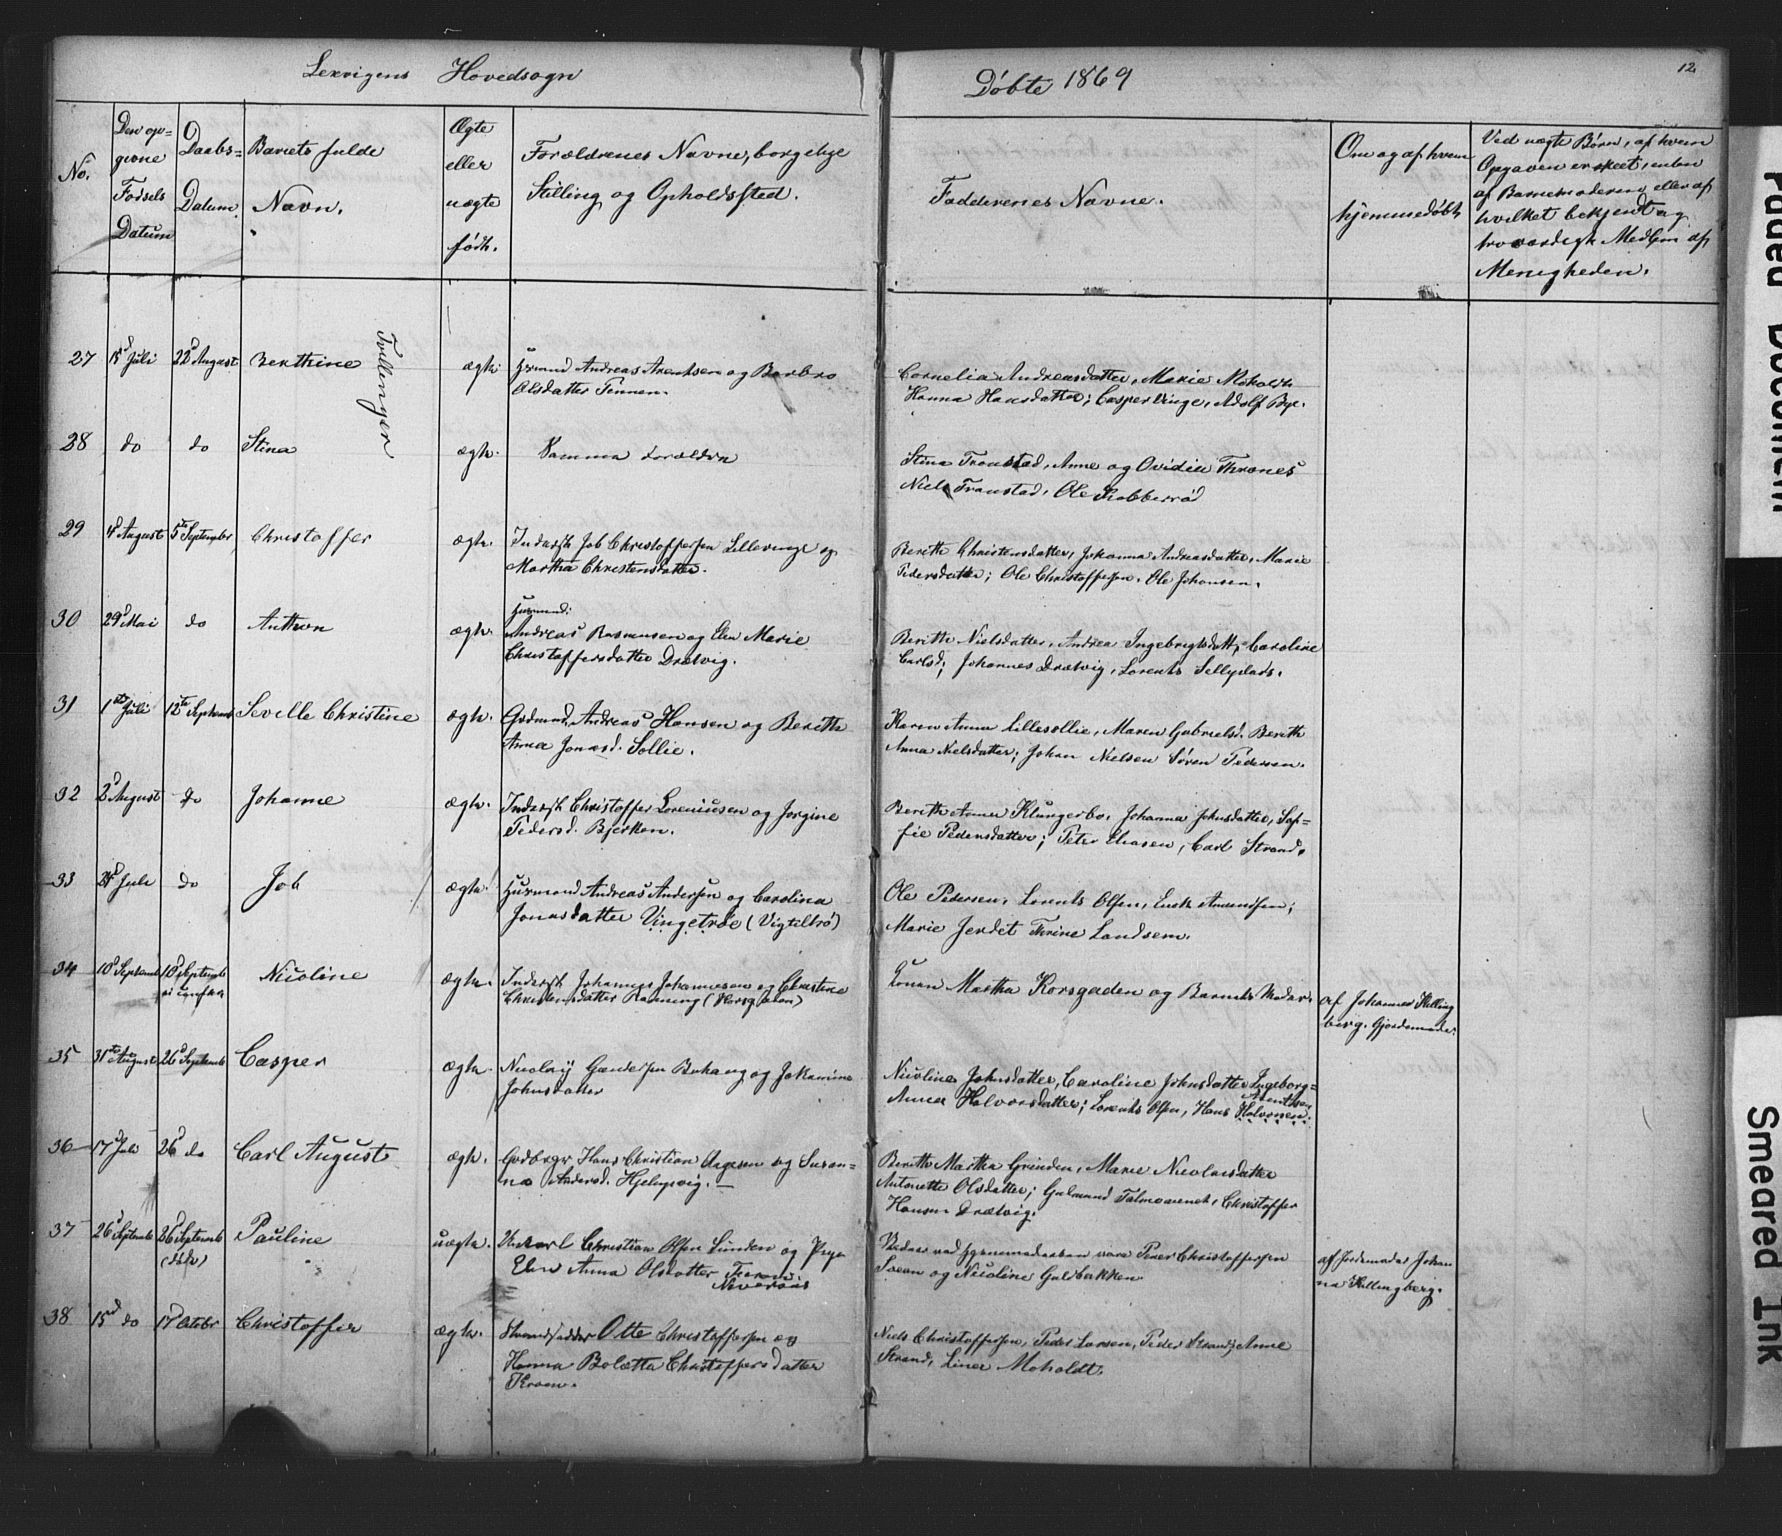 Lexvigens Hovedsogn
Døbte 1869
12
No.
Den op-
givne
Fødsels
Datum
Daabs-
Datum.
Barnets fulde
Navn.
Ægte
eller
uægte
født.
Forældrenes Navne, borgelige
Stilling og Opholdssted.
Faddernes Navne.
Om og af hvem
hjemmedøbt
Ved uægte Børn, af hvem
Opgaven er skeet, enten
af Barnemoderen eller af
hvilket bekjendt og
troværdigt Medlem af
Menigheden.
Tvillinger
27 15d Juli 22d August Berthine ægte. Husmand Andreas Arentsen og Barbro
Olsdatter Tennen.
Cornelia Andreasdatter, Marie Moholdt
Hanna Hansdatter; Casper Vinge, Adolf Bye.
28 do do Stina ægte. Samma Forældre
Stina Tronstad, Anne og Ovidia Thranes
Niels Transtad, Ole Robberrød
29 4d August 5te September Christoffer ægte. Inderst Job Christoffersen Lillevinge og
Martha Christensdatter.
Berethe Christensdatter, Johanna Andreasdatter, Marie
Pedersdatter; Ole Christoffersen, Ole Johansen.
30 29d Mai do Anthon ægte. Husmand:
Andreas Rasmusen og Elen Marie
Christoffersdatter Drætvig.
Berethe Nielsdatter, Andrea Ingebrigtsdatt, Caroline
Carlsd; Johannes Drætvig, Lorents Sellydals.
31 1ste Juli 12te Septemb Seville Christine ægte. Grdmand Andreas Hansen og Berethe
Anna Jonasd. Sollie.
Karen Anna Lillesollie, Maren Gabrielsd. Bereth
Anna Nielsdatter; Johan Nielsen Søren Pedersen.
32 2d August do Johanne ægte. Inderst Christoffer Loreniusen og Jørgine
Pedersd. Bjerkan.
Bereth Anna Klungerbo, Johanna Johnsdatter, Sof-
fie Pedersdatter; Peter Eliasen, Carl Strand.
33 24d Juli do Job ægte. Husmand Andreas Andersen og Carolina
Jonasdatter Vingetrøe (Vigteltrø)
Ole Pedersen, Lorents Olsen, Enok Amundsen;
Marie Jerdet Thrine Landsem.
34 10d Septemb 10d Septemb Nicoline ægte. Inderst Johannes Johannesen og Christine
Christensdatter Rønning
Konen Martha Korsgaden og Barnets Moder.
af Johanna Killing
berg. Gjordemoder.
35 31te August 26d Septemb Casper ægte. Nicolay Gundersen Buhaug og Johannine
Johnsdatter
Nicoline Johnsdatter, Caroline Johnsdatter Ingeborg-
Anna Halvorsdatter; Lorents Olsen, Hans Arentsen
Halvorsen.
36 17d Juli 26d do Carl August ægte. Grdbrgr Hans Christian Aagesen og Susan-
na Andersd. Hjelupvig.
Bereth Martha Grinden, Marie Nicolaisdatter
Antonette Olsdatter; Gulmand Talmoenet, Christoffer
Hansen Drætvig.
37 26d Septemb 26d Septemb Pauline uægte. Unkarl Christian Olsen Linden og Pige
(død)
Elen Anna Olsdatter
Vidner ved hjemmedaaben vare Peter Christoffersen
og Nicoline Gulbakken
af Jordemoder Johan
na Killingberg.
38 15d do 17d Octobr Christoffer ægte. Strandsidder Otte Christoffersen og
Hanna Boletta Christoffersdatter
Kroen.
Niels Christoffersen, Peder Larsen, Peder Strand; Anne
Strand, Lines Moholdt.
Faded Document
Smeared Ink